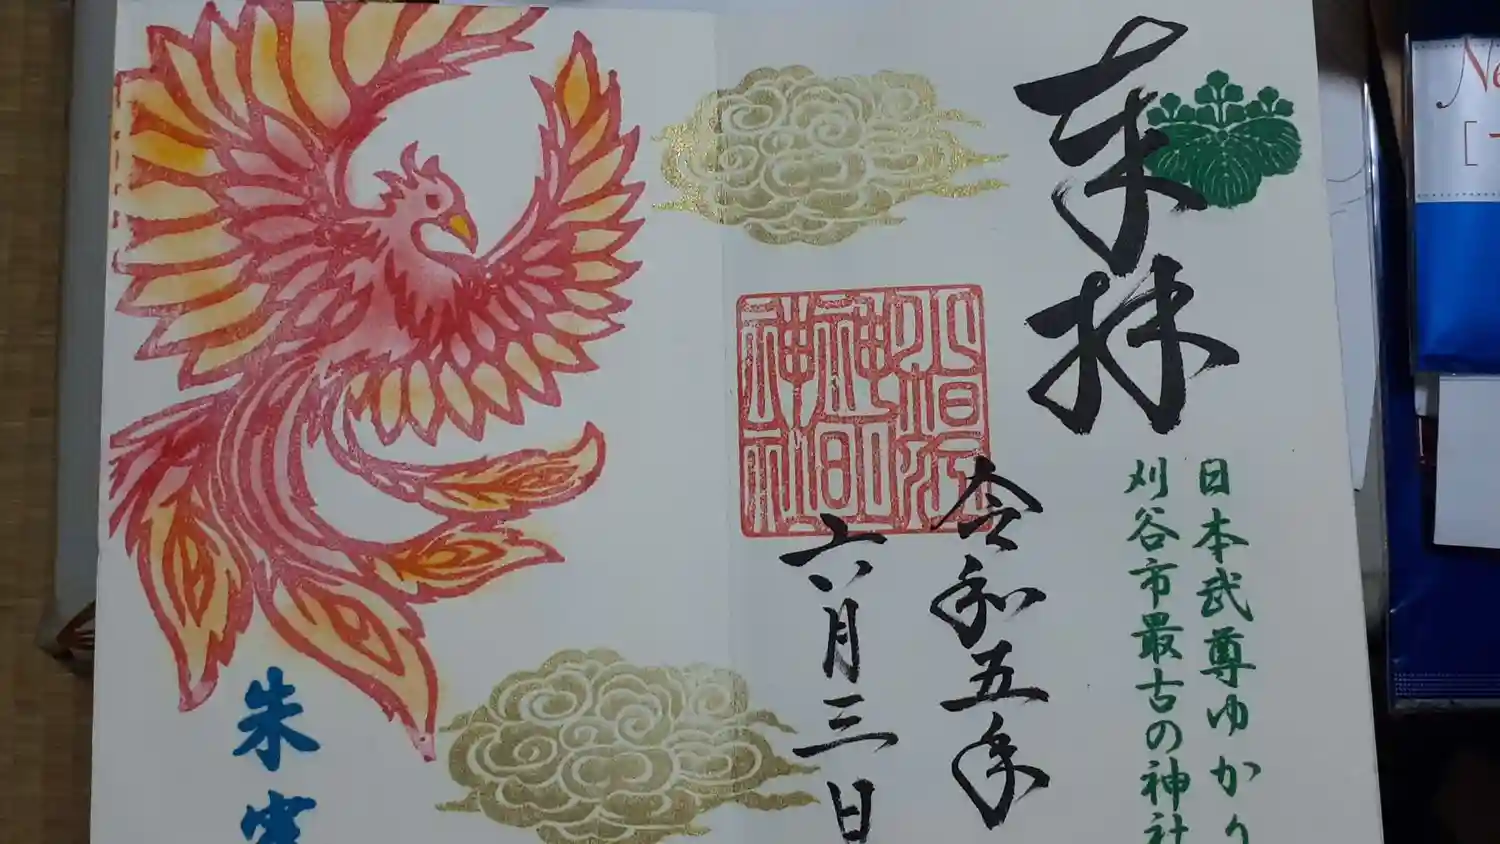 奉拝
日本武尊ゆかり
刈谷市最古の神社
令和五年
六月三日
朱